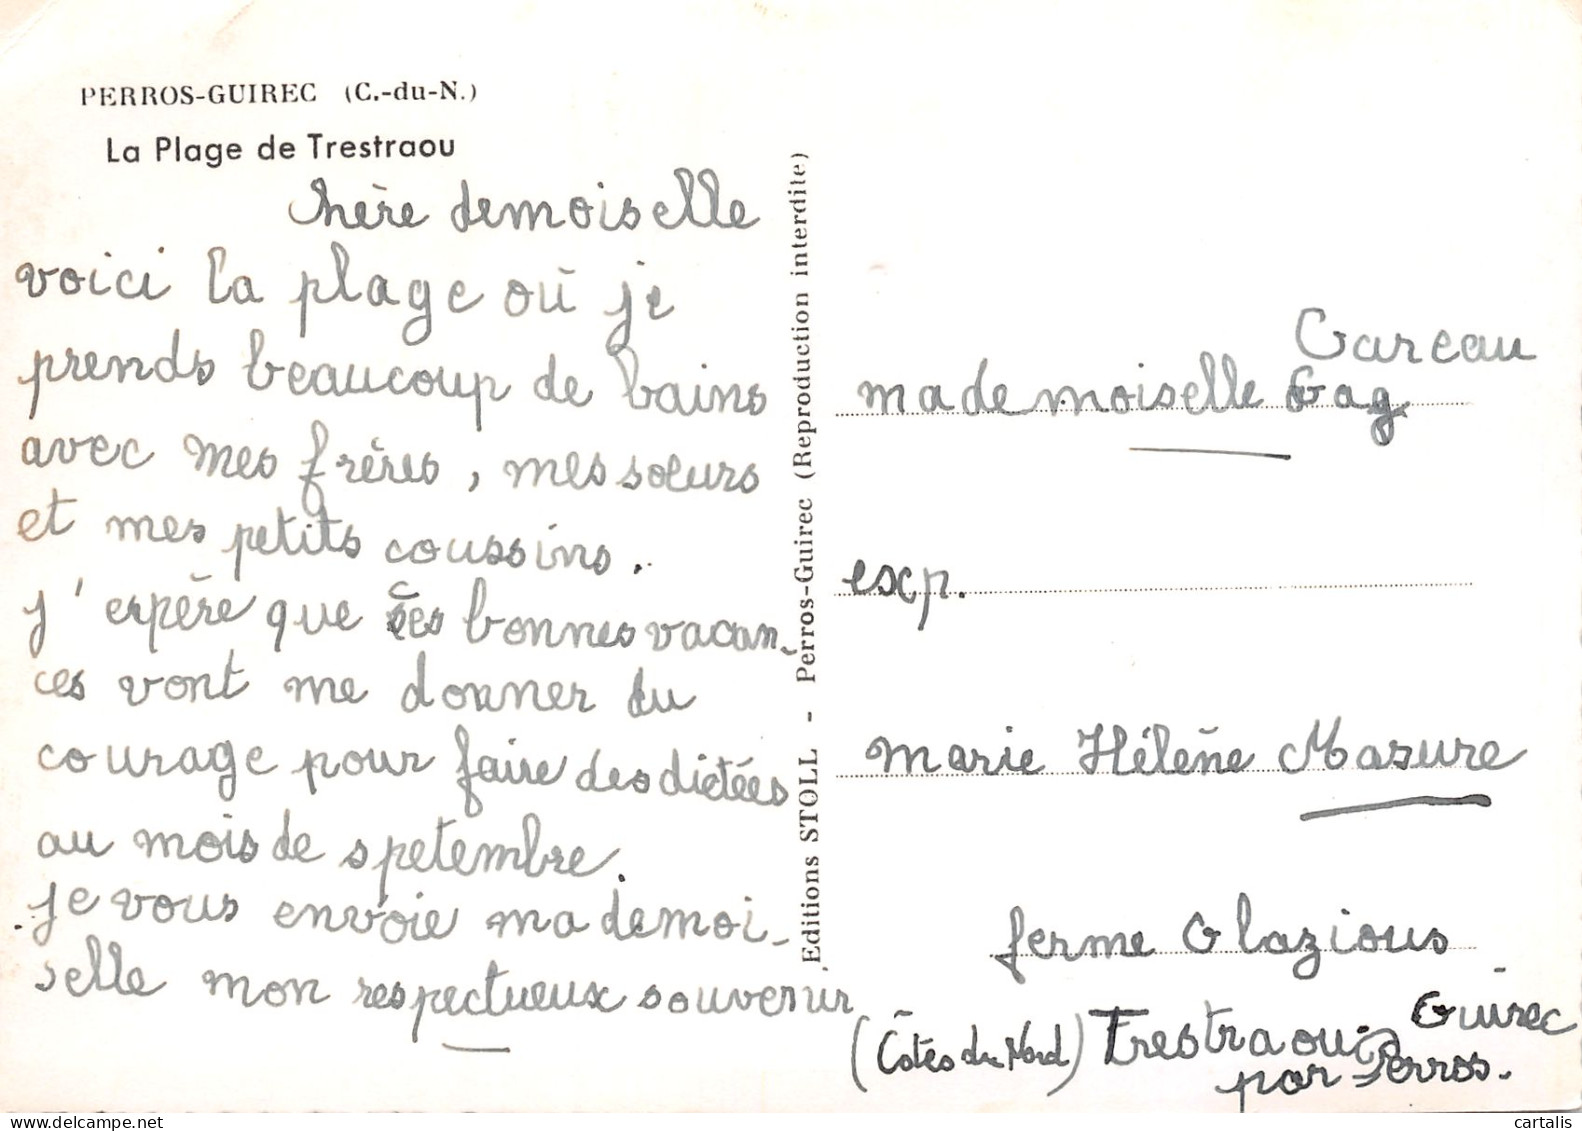 PERROS-GUIREC (C.-du-N.)
La Plage de Trestraou
chère demoiselle
voici la plage où je
prends beaucoup de bains
avec mes frères, mes soeurs
et mes petits coussins.
j'espère que ces bonnes vacan-
ces vont me donner du
courage pour faire des dictées
au mois de spetembre.
je vous envoie mademoi-
selle mon respectueux souvenir
Editions STOLL - Perros-Guirec (Reproduction interdite)
Gareau
mademoiselle Gag
exp.
marie Hélène Masure
ferme Glazious
(Côtes du Nord) Trestraou
par Perros. Guirec
cartalis